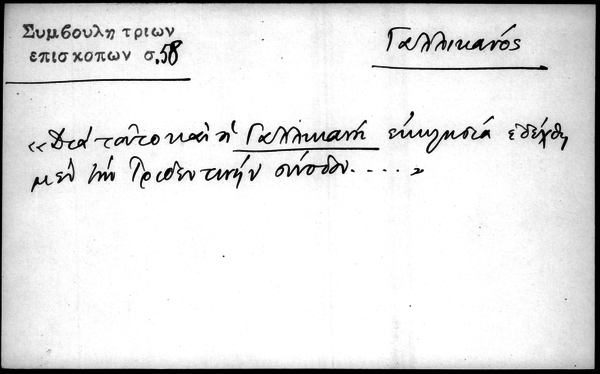 Συμβουλη τριων
επισκοπων σ.58
Γαλλικανός
«Διά τοῦτο καὶ ἡ Γαλλικανή εκκλησία εδέχθη
μεν την Τριδεντινήν σύνοδον.....»